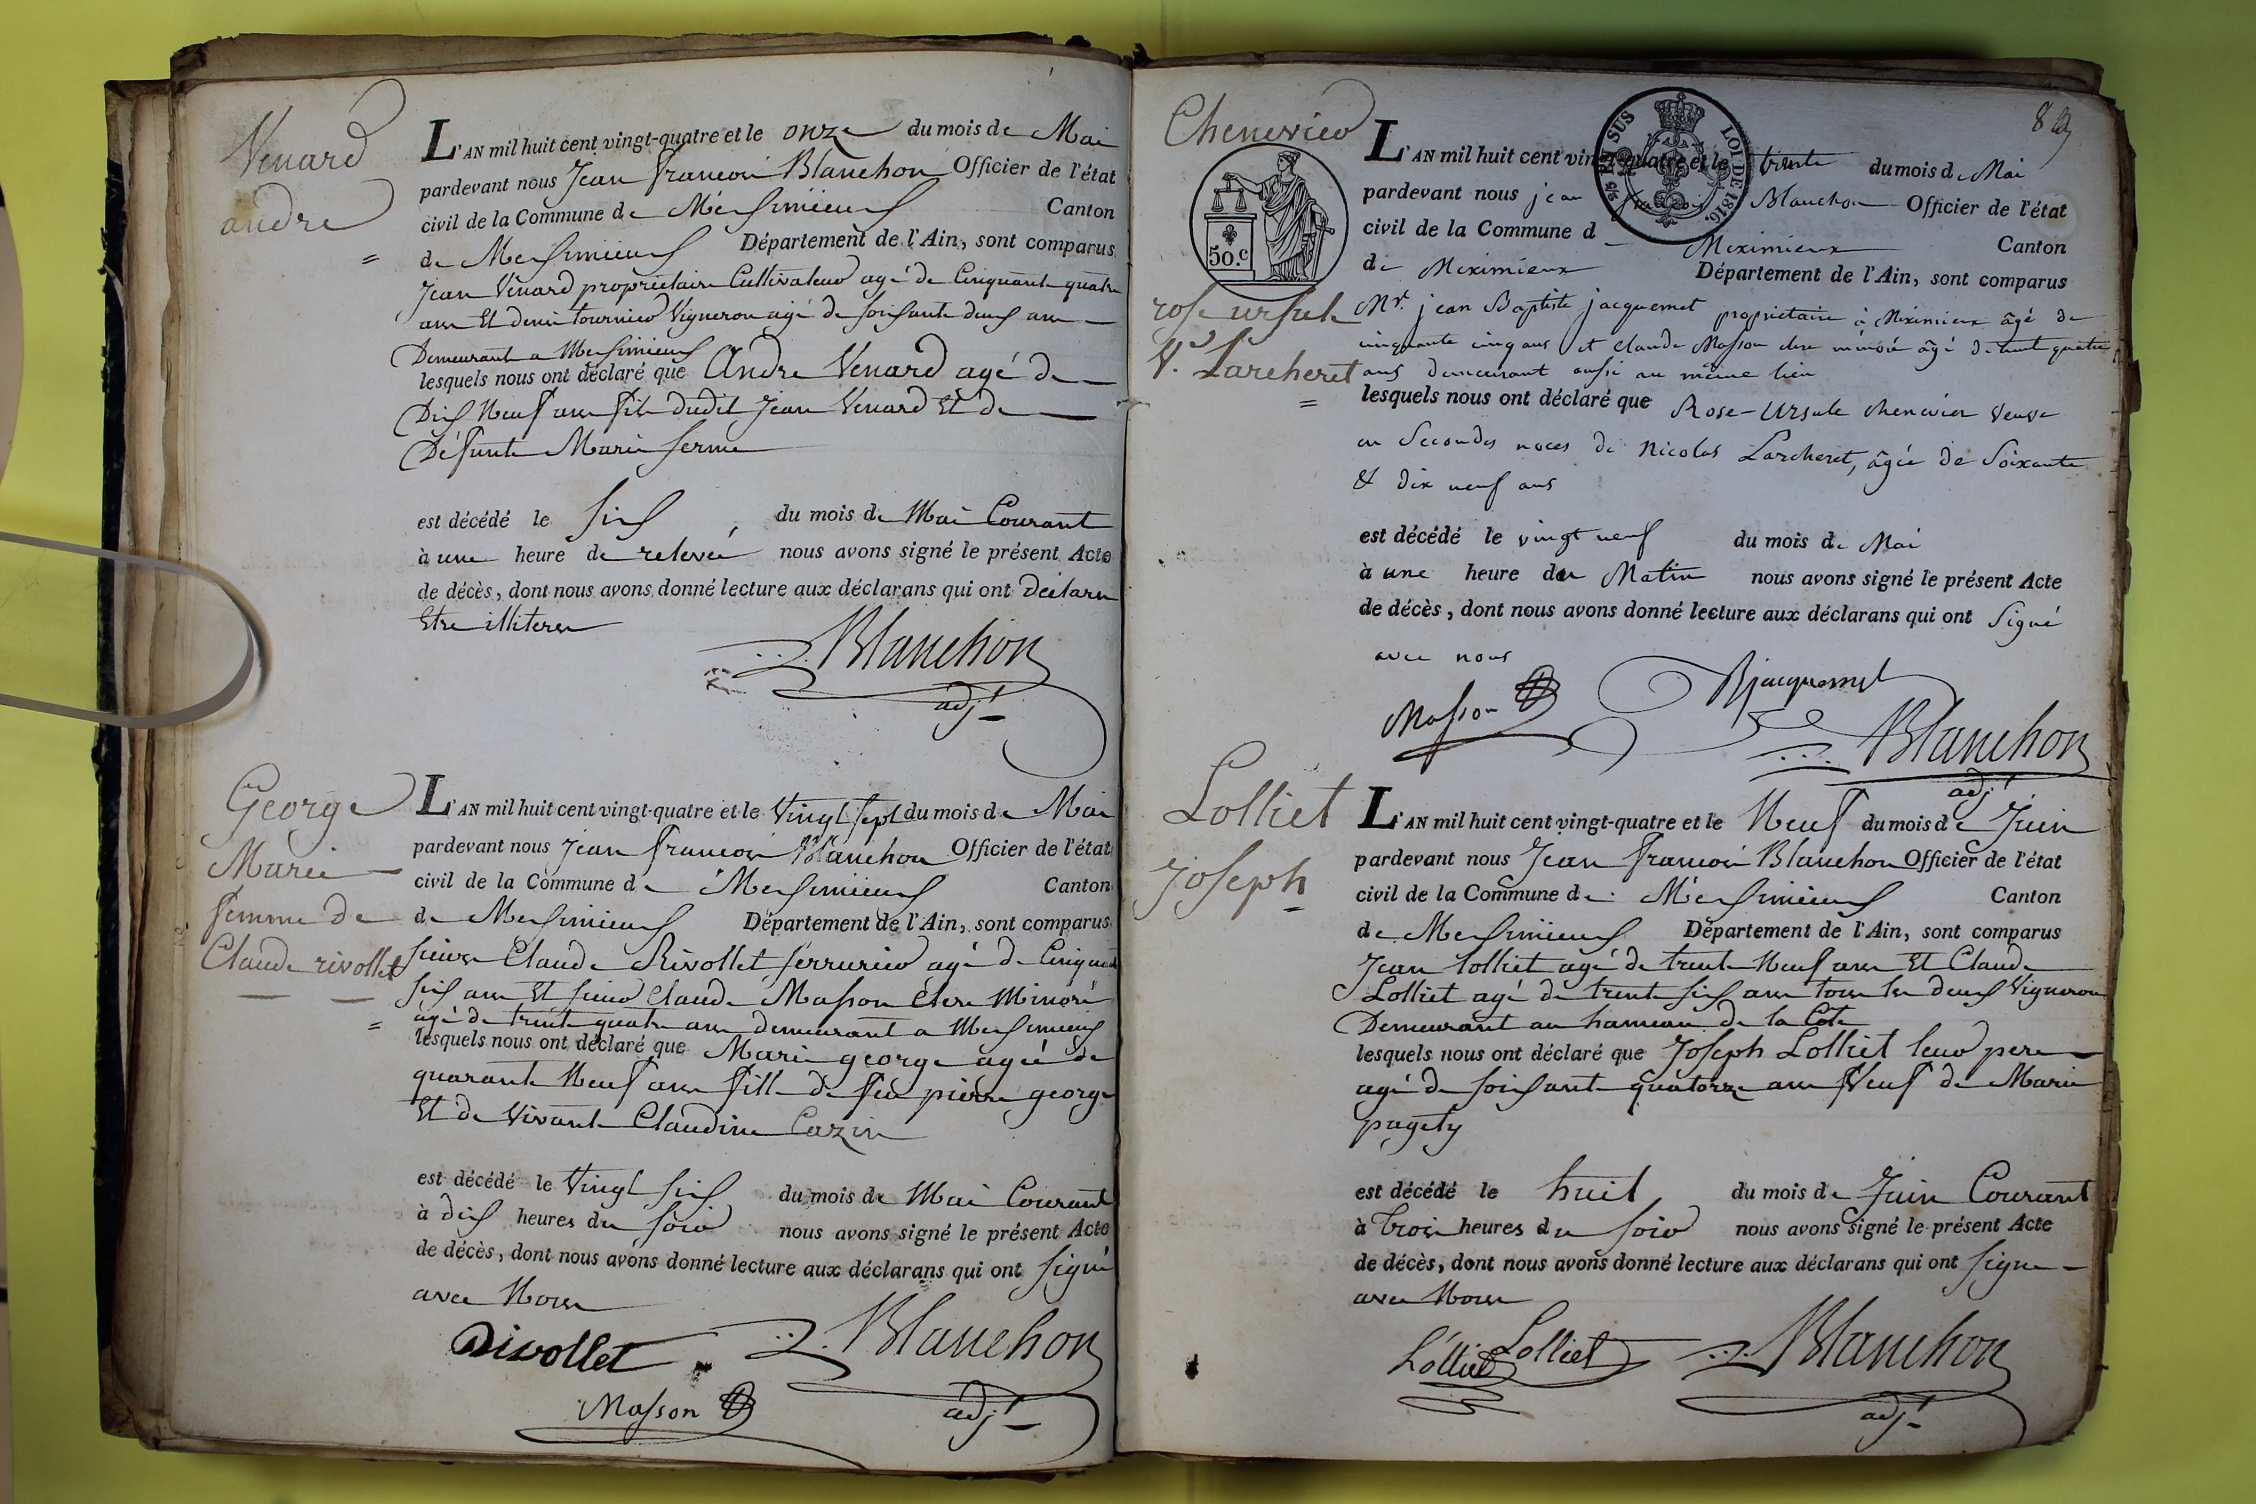 Venard
andre
=
L'AN mil huit cent vingt-quatre et le onze du mois de Mai
pardevant nous Jean francois Blanchon Officier de l'état
civil de la Commune de Meximieux Canton
de Meximieux Département de l'Ain, sont comparus
Jean Venard propriétaire Cultivateur agé de Cinquante quatre
ans Et denis tournier Vigneron agé de soixante deux ans
Demeurant a Meximieux
lesquels nous ont déclaré que Andre Venard agé de
Dix Neuf ans fils dudit Jean Venard Et de
Défunte Marie ferme
est décédé le six, du mois de Mai Courant
à une heure de relevée nous avons signé le présent Acte
de décès, dont nous avons donné lecture aux déclarans qui ont declare
Etre illiteres
Blanchon
adjt
George
Marie
femme de
Claude rivollet
=
L'AN mil huit cent vingt-quatre et le Vingt sept du mois de Mai
pardevant nous Jean francois Blanchon Officier de l'état
civil de la Commune de Meximieux Canton
de Meximieux Département de l'Ain, sont comparus
sieurs Claude Rivollet serrurier agé de Cinquante
six ans Et sieur Claude Masson clerc Minoré
agé de trente quatre ans demeurant a Meximieux
lesquels nous ont déclaré que Marie george agée de
quarante Neuf ans fille de feu pierre george
Et de Vivante Claudine Cazin
est décédé le Vingt six du mois de Mai Courant
à dix heures du soir nous avons signé le présent Acte
de décès, dont nous avons donné lecture aux déclarans qui ont signé
avec Nous
Rivollet Blanchon
Masson adjt
Chenevier
rose ursule
V.e Larcheret
=
50.c
EN SUS LOI DE 1816.
L'AN mil huit cent vingt-quatre et le trente du mois de Mai
pardevant nous jean francois Blanchon Officier de l'état
civil de la Commune d Meximieux Canton
de Meximieux Département de l'Ain, sont comparus
Mr. jean Baptiste jacquemet propriétaire à Meximieux âgé de
cinquante cinq ans et claude Masson clerc minoré âgé de trente quatre
ans demeurant aussi au même lieu
lesquels nous ont déclaré que Rose-Ursule chenevier veuve
en Secondes noces de Nicolas Larcheret, âgée de Soixante
& dix neuf ans
est décédé le vingt neuf du mois de Mai
à une heure du Matin nous avons signé le présent Acte
de décès, dont nous avons donné lecture aux déclarans qui ont Signé
avec nous
Bjacquemet
Masson Blanchon
adjt
Lolliet
Joseph
L'AN mil huit cent vingt-quatre et le Neuf du mois de Juin
pardevant nous Jean francois Blanchon Officier de l'état
civil de la Commune de Meximieux Canton
de Meximieux Département de l'Ain, sont comparus
Jean Lolliet agé de trente Neuf ans Et Claude
Lolliet agé de trente six ans tous les deux Vignerons
Demeurant au hameau de la Cote
lesquels nous ont déclaré que Joseph Lolliet leur pere
agé de soixante quatorze ans Veuf de Marie
pagety
est décédé le huit du mois de Juin Courant
à trois heures du soir nous avons signé le présent Acte
de décès, dont nous avons donné lecture aux déclarans qui ont signe
avec Nous
Lolliet Lolliet Blanchon
adjt